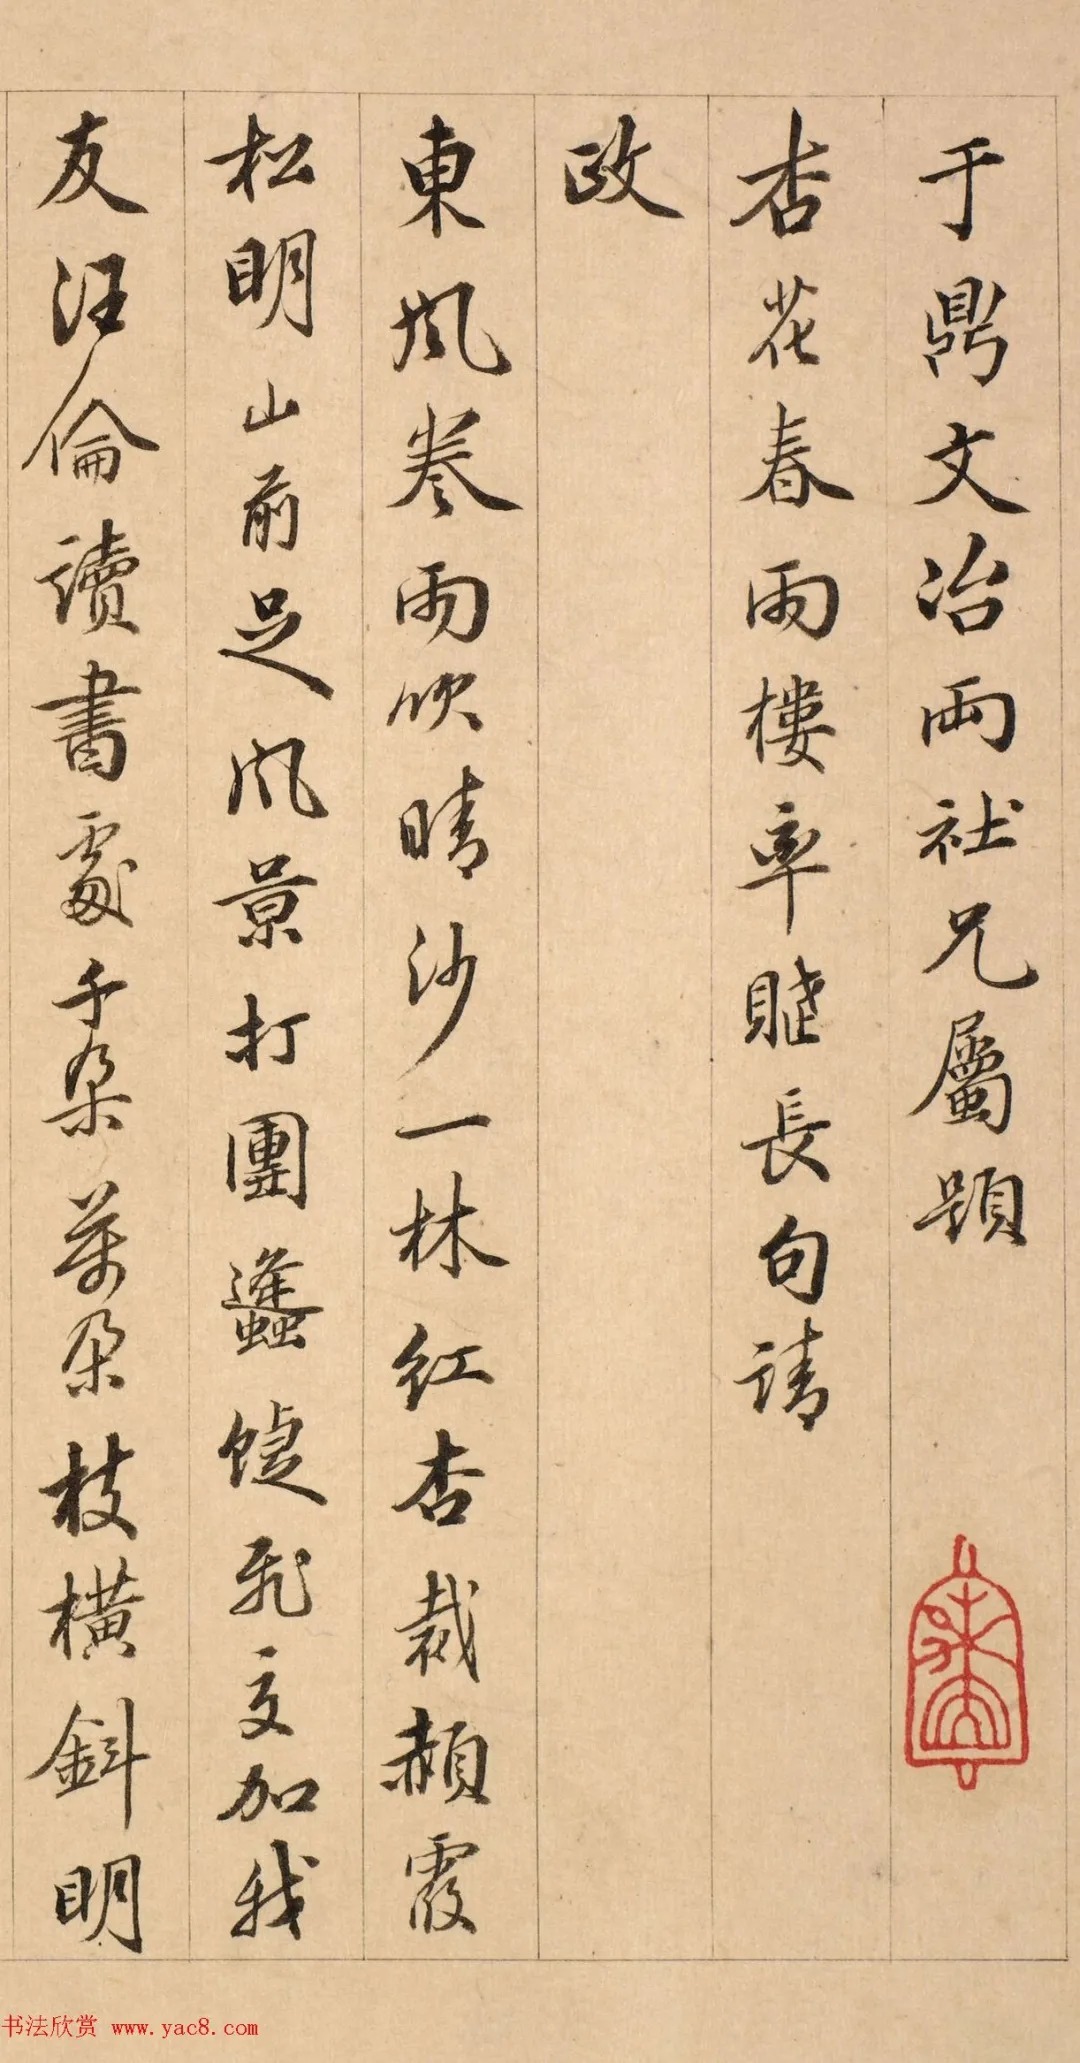 于鼎文冶兩社兄屬題
杏花春雨樓率賦長句請
政
東風卷雨吹晴沙一林紅杏裁赬霞
松明山前足風景打團蠭蜨飛交加我
友汪倫讀書處千朵萬朵枝橫斜明
书法欣赏 www.yac8.com